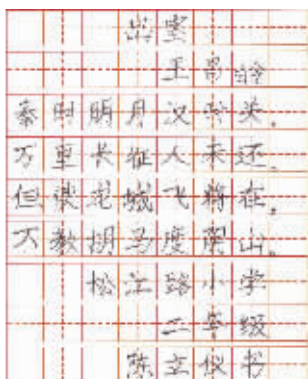 出塞
王昌龄
秦时明月汉时关。
万里长征人未还。
但使龙城飞将在。
不教胡马度阴山。
松江路小学
二年级
陈立仪书